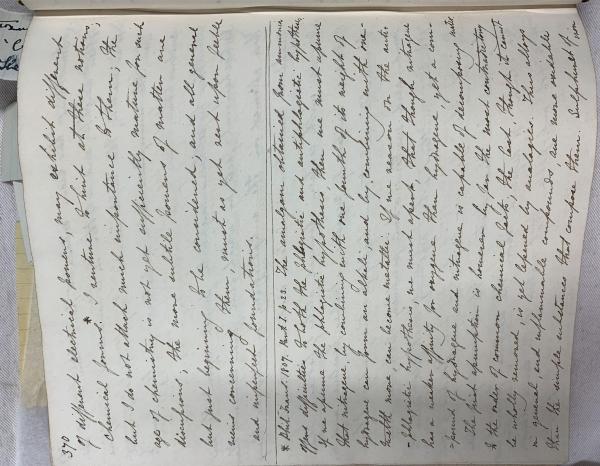 370
of different electrical powers, may exhibit different
chemical forms. * I venture to hint at these notions;
but I do not attach much importance to them; the
age of chemistry is not yet sufficiently mature for such
discussions; the more subtile powers of matter are
but just beginning to be considered; and all general
views concerning them, must as yet rest upon feeble
and imperfect foundations.
* Phil. Trans. 1807. Part I. p. 23. The amalgam obtained from ammonia
offers difficulties to both the phlogistic and antiphlogistic hypotheses.
If we assume the phlogistic hypothesis, then we must assume
that nitrogene, by combining with one fourth of its weight of
hydrogene can form an alkali, and by combining with one-
twelfth more can become metallic. If we reason on the anti-
-phlogistic hypothesis, we must assert, that though nitrogene
has a weaker affinity for oxygene than hydrogene, yet a com-
-pound of hydrogene and nitrogene is capable of decomposing water.
The first assumption is however by far the most contradictory
to the order of common chemical facts; the last, though it cannot
be wholly removed, is yet lessened by analogies. Thus alloys
in general, and inflammable compounds are more oxidable
than the simple substances that compose them. Sulphuret of iron